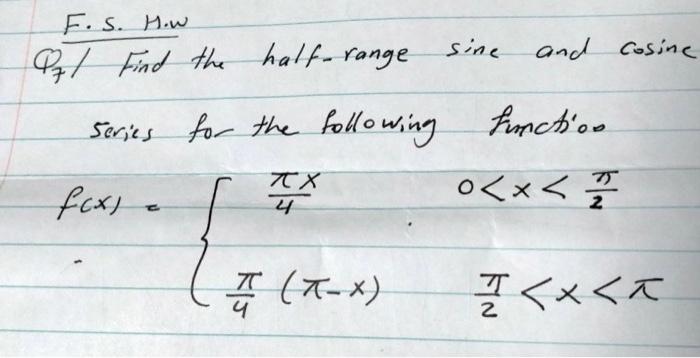 F. S. H.w
Q7/ Find the half-range sine and cosine
series for the following function
f(x) = { πx/4 0<x<π/2
π/4 (π-x) π/2<x<π